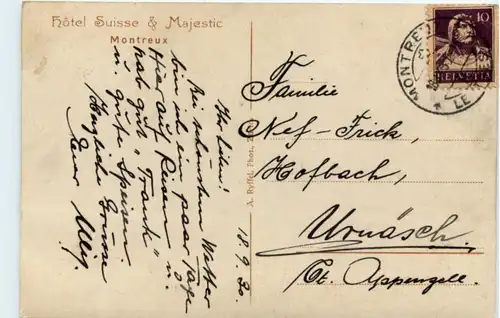 Hôtel Suisse & Majestic
Montreux
18. 9. 30.
Ihr Lieben!
Bei schönstem Wetter
bin ich ein paar Tage
hier auf Reisen u.
hab gute "Trank"
u. gute Speisen.
Herzliche Grüsse
Euer
A. Ryffel, Phot.
MONTREUX
10
HELVETIA
Familie
Nef-Frick,
Hofbach,
Urnäsch.
Ct. Appenzell.